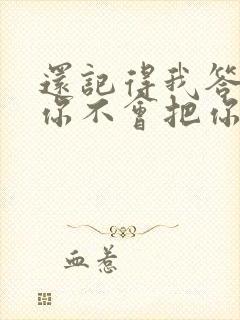 還記得我答
你不會把你
血惹